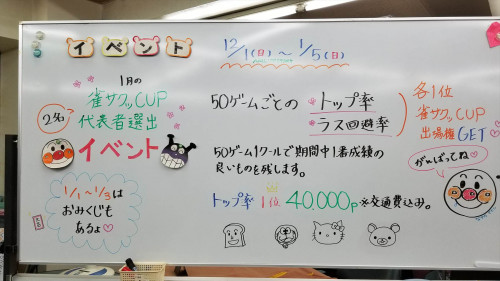 イベント
12/1(日)～1/5(日)
1月の
雀サクッCUP
2名
代表者選出
イベント
1/1～1/3は
おみくじも
あるょ♡
50ゲームごとの
トップ率
ラス回避率
各1位
雀サクッCUP
出場権GET♡
がんばってね♡
50ゲーム1クールで期間中1番成績の
良いものを残します。
トップ率 1位 40,000P ※交通費込み。